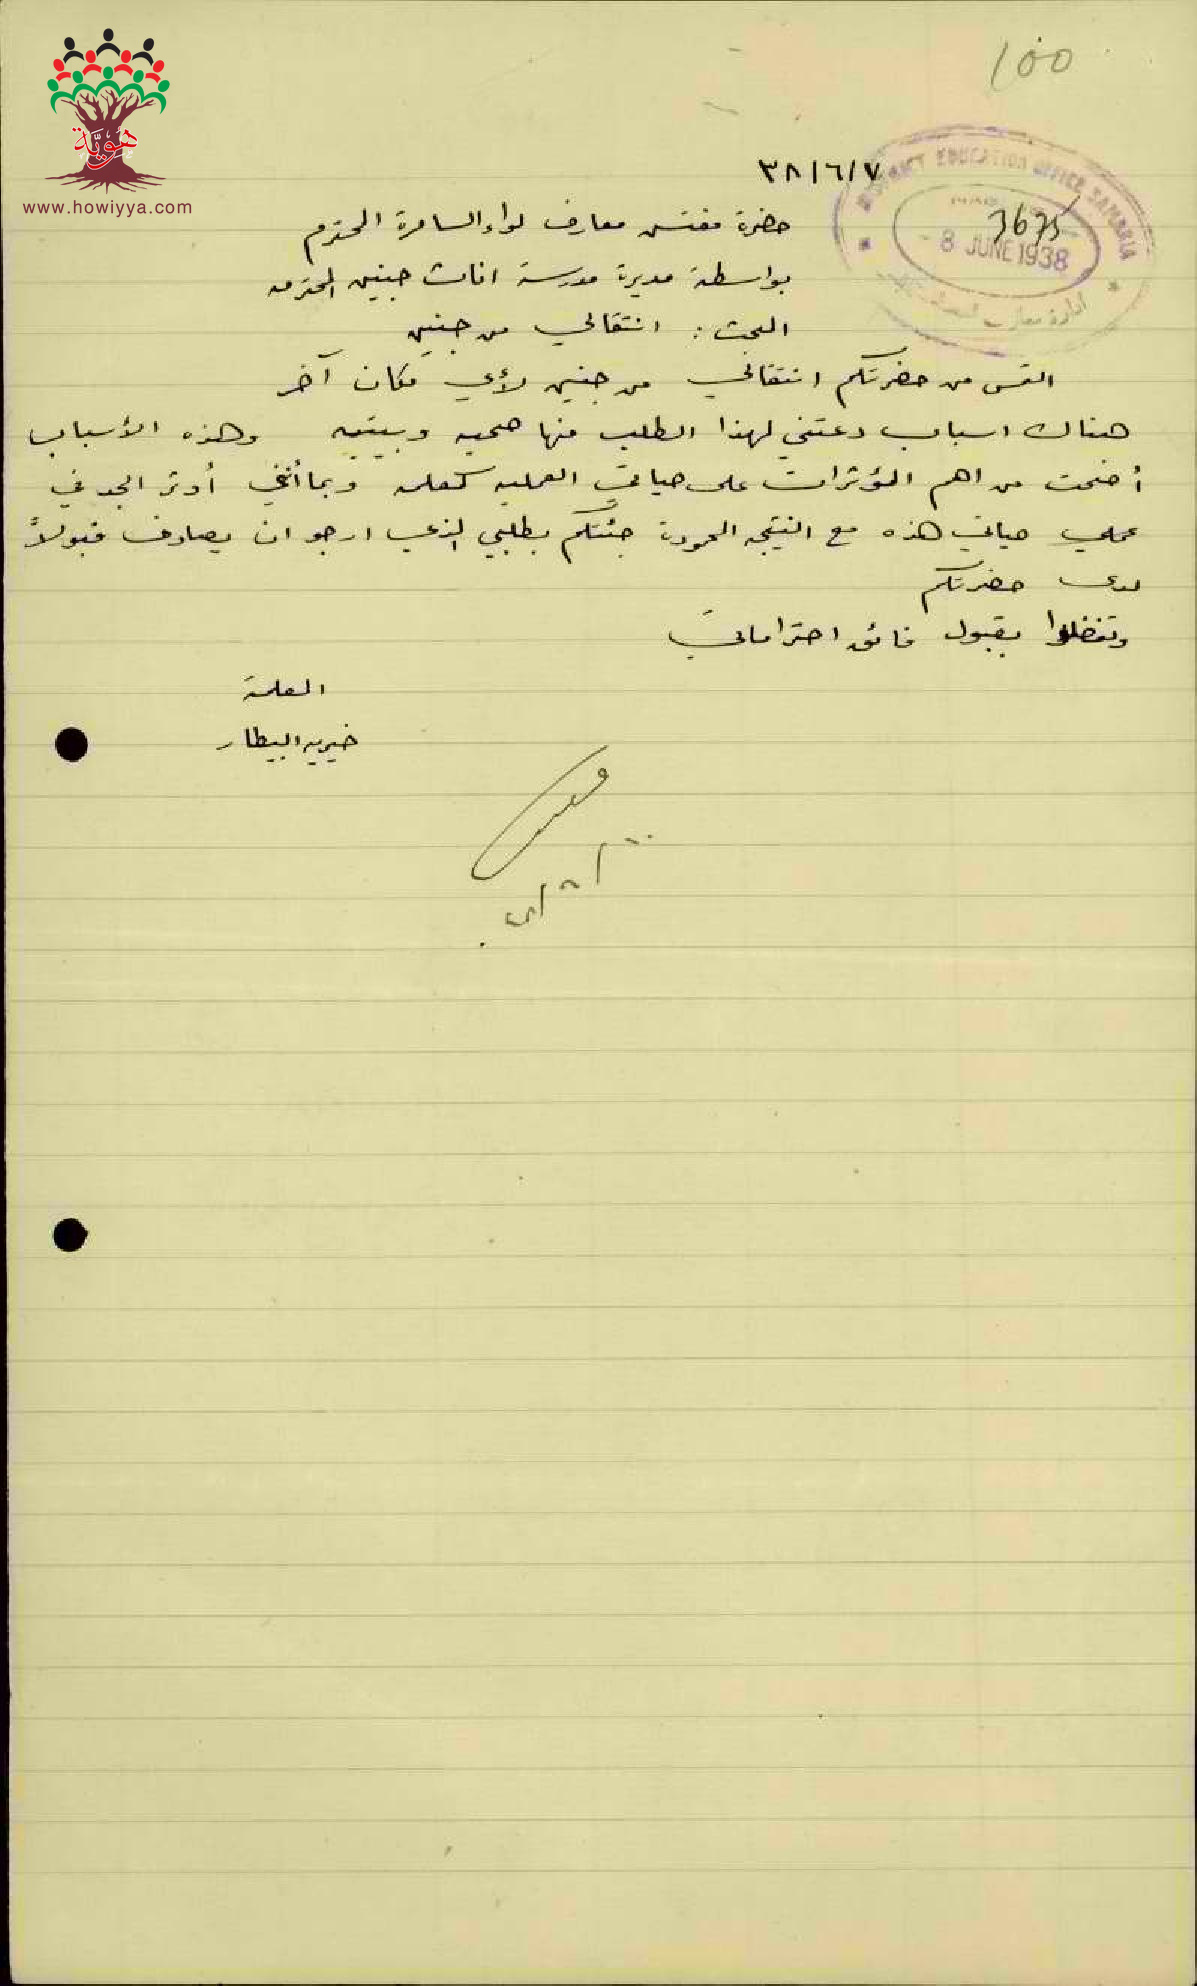 100
هوية
www.howiyya.com
٣٨/٦/٧
DISTRICT EDUCATION OFFICE SAMARIA
3675
8 JUNE 1938
ادارة معارف
حضرة مفتش معارف لواء السامرة المحترم
بواسطة مديرة مدرسة اناث جنين المحترمه
البحث : انتقالي من جنين
التمس من حضرتكم انتقالي من جنين لأي مكان آخر
هناك اسباب دعتني لهذا الطلب منها صحيه وبيتيه وهذه الأسباب
أضحت من اهم المؤثرات على حياتي العمليه كمعلمه وبما أنني أوثر الجد في
عملي حياتي هذه مع النتيجه المحموده جئتكم بطلبي الذي ارجو ان يصادف قبولاً
لدى حضرتكم
وتفضلوا بقبول فائق احتراماتي
المعلمة
خيريه البيطار